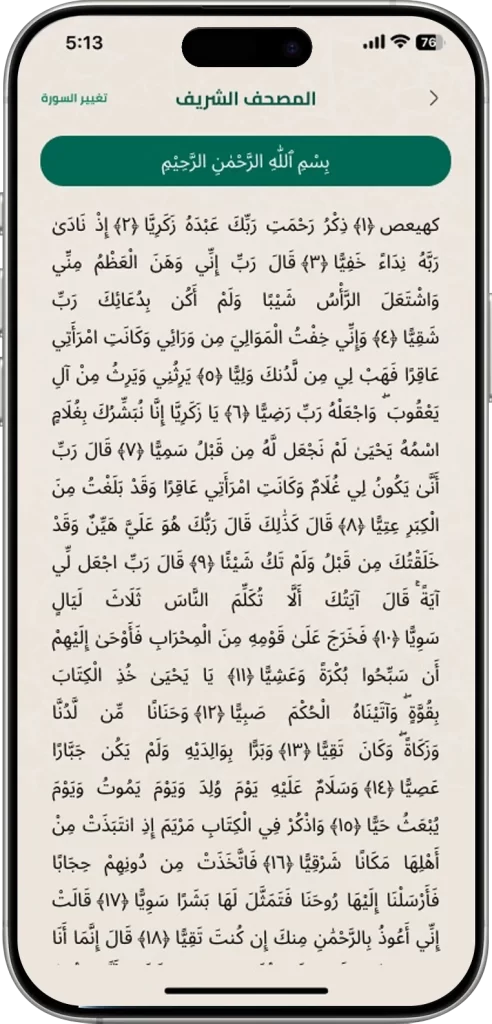 5:13
76
المصحف الشريف
تغيير السورة
بِسْمِ ٱللَّهِ الرَّحْمَٰنِ الرَّحِيْمِ
كهيعص ﴿١﴾ ذِكْرُ رَحْمَتِ رَبِّكَ عَبْدَهُ زَكَرِيَّا ﴿٢﴾ إِذْ نَادَىٰ
رَبَّهُ نِدَاءً خَفِيًّا ﴿٣﴾ قَالَ رَبِّ إِنِّي وَهَنَ الْعَظْمُ مِنِّي
وَاشْتَعَلَ الرَّأْسُ شَيْبًا وَلَمْ أَكُن بِدُعَائِكَ رَبِّ
شَقِيًّا ﴿٤﴾ وَإِنِّي خِفْتُ الْمَوَالِيَ مِن وَرَائِي وَكَانَتِ امْرَأَتِي
عَاقِرًا فَهَبْ لِي مِن لَّدُنكَ وَلِيًّا ﴿٥﴾ يَرِثُنِي وَيَرِثُ مِنْ آلِ
يَعْقُوبَ ۖ وَاجْعَلْهُ رَبِّ رَضِيًّا ﴿٦﴾ يَا زَكَرِيَّا إِنَّا نُبَشِّرُكَ بِغُلَامٍ
اسْمُهُ يَحْيَىٰ لَمْ نَجْعَل لَّهُ مِن قَبْلُ سَمِيًّا ﴿٧﴾ قَالَ رَبِّ
أَنَّىٰ يَكُونُ لِي غُلَامٌ وَكَانَتِ امْرَأَتِي عَاقِرًا وَقَدْ بَلَغْتُ مِنَ
الْكِبَرِ عِتِيًّا ﴿٨﴾ قَالَ كَذَٰلِكَ قَالَ رَبُّكَ هُوَ عَلَيَّ هَيِّنٌ وَقَدْ
خَلَقْتُكَ مِن قَبْلُ وَلَمْ تَكُ شَيْئًا ﴿٩﴾ قَالَ رَبِّ اجْعَل لِّي
آيَةً ۚ قَالَ آيَتُكَ أَلَّا تُكَلِّمَ النَّاسَ ثَلَاثَ لَيَالٍ
سَوِيًّا ﴿١٠﴾ فَخَرَجَ عَلَىٰ قَوْمِهِ مِنَ الْمِحْرَابِ فَأَوْحَىٰ إِلَيْهِمْ
أَن سَبِّحُوا بُكْرَةً وَعَشِيًّا ﴿١١﴾ يَا يَحْيَىٰ خُذِ الْكِتَابَ
بِقُوَّةٍ ۖ وَآتَيْنَاهُ الْحُكْمَ صَبِيًّا ﴿١٢﴾ وَحَنَانًا مِّن لَّدُنَّا
وَزَكَاةً ۖ وَكَانَ تَقِيًّا ﴿١٣﴾ وَبَرًّا بِوَالِدَيْهِ وَلَمْ يَكُن جَبَّارًا
عَصِيًّا ﴿١٤﴾ وَسَلَامٌ عَلَيْهِ يَوْمَ وُلِدَ وَيَوْمَ يَمُوتُ وَيَوْمَ
يُبْعَثُ حَيًّا ﴿١٥﴾ وَاذْكُرْ فِي الْكِتَابِ مَرْيَمَ إِذِ انتَبَذَتْ مِنْ
أَهْلِهَا مَكَانًا شَرْقِيًّا ﴿١٦﴾ فَاتَّخَذَتْ مِن دُونِهِمْ حِجَابًا
فَأَرْسَلْنَا إِلَيْهَا رُوحَنَا فَتَمَثَّلَ لَهَا بَشَرًا سَوِيًّا ﴿١٧﴾ قَالَتْ
إِنِّي أَعُوذُ بِالرَّحْمَٰنِ مِنكَ إِن كُنتَ تَقِيًّا ﴿١٨﴾ قَالَ إِنَّمَا أَنَا